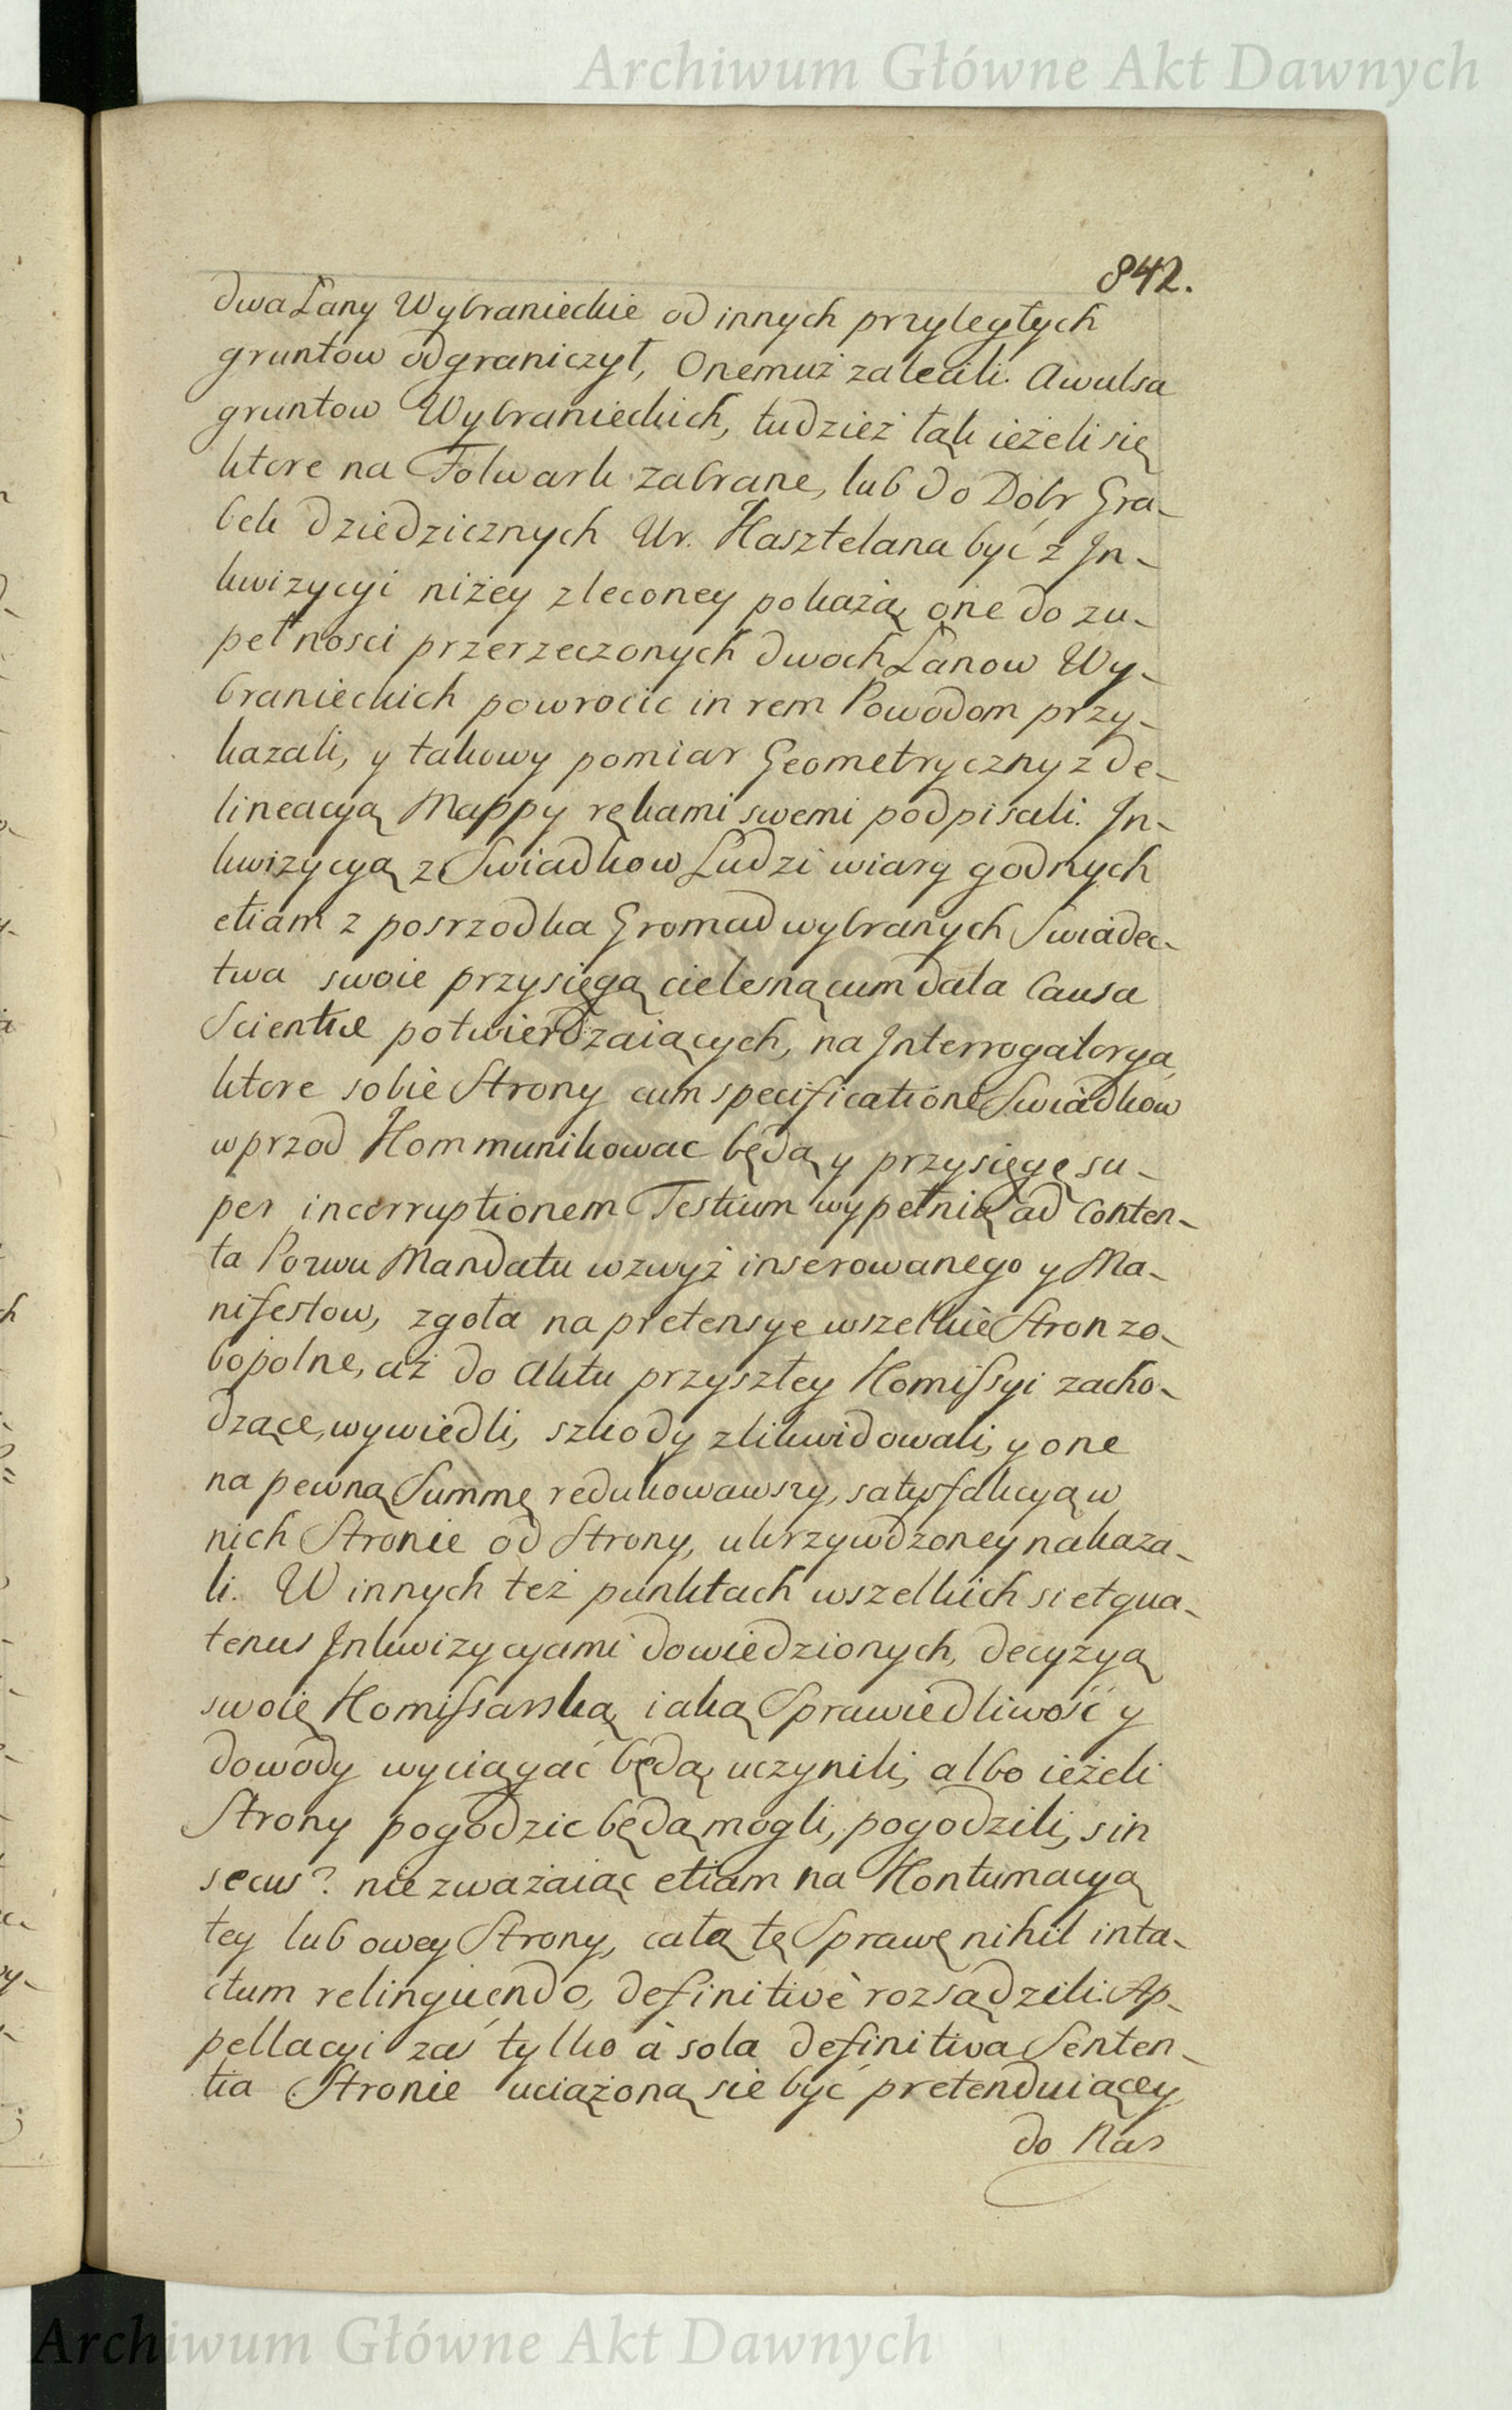 Archiwum Główne Akt Dawnych
842.
dwa Łany Wybranieckie od innych przyległych
gruntow odgraniczył, Onemuż zalecili. Awulsa
gruntow Wybranieckich, tudzież łąk ieżeli się
ktore na Folwark zabrane, lub do Dóbr Gra-
bek dziedzicznych Ur. Kasztelana być z In-
kwizycyi niżey zleconey pokażą, one do zu-
pełnosci przerzeczonych dwoch Łanow Wy-
branieckich powrocic in rem Powodom przy-
kazali, y takowy pomiar Geometryczny z de-
lineacyą Mappy rękami swemi podpisali. In-
kwizycyą z Swiadkow Ludzi wiary godnych
etiam z posrzodka Gromad wybranych Swiadec-
twa swoie przysięgą cielesną cum data Causa
Scientiæ potwierdzaiących, na Interrogatorya,
ktore sobie Strony cum specificatione Swiadkow
wprzod Kommunikowac będą y przysięgę su-
per incorruptionem Testium wypełnią ad Conten-
ta Pozwu Mandatu wzwyż inserowanego y Ma-
nifestow, zgoła na pretensye wszelkie Stron zo-
bopolne, aż do Aktu przyszłey Komissyi zacho-
dzące, wywiedli, szkody zlikwidowali, y one
na pewną Summę redukowawszy, satysfakcyą w
nich Stronie od Strony, ukrzywdzoney nakaza-
li. W innych też punktach wszelkich si et qua-
tenus Inkwizycyami dowiedzionych, decyzyą
swoię Komissarską, iaką Sprawiedliwość y
dowody wyciągać będą, uczynili, albo ieżeli
Strony pogodzic będą mogli, pogodzili, sin
secus? nie zważaiąc etiam na Kontumacyą
tey lub owey Strony, całą tę Sprawę nihil inta-
ctum relinquendo, definitivè rozsądzili. Ap-
pellacyi zaś tylko à sola definitiva Senten-
tia Stronie uciążoną się być pretenduiącey
do Nas
Archiwum Główne Akt Dawnych